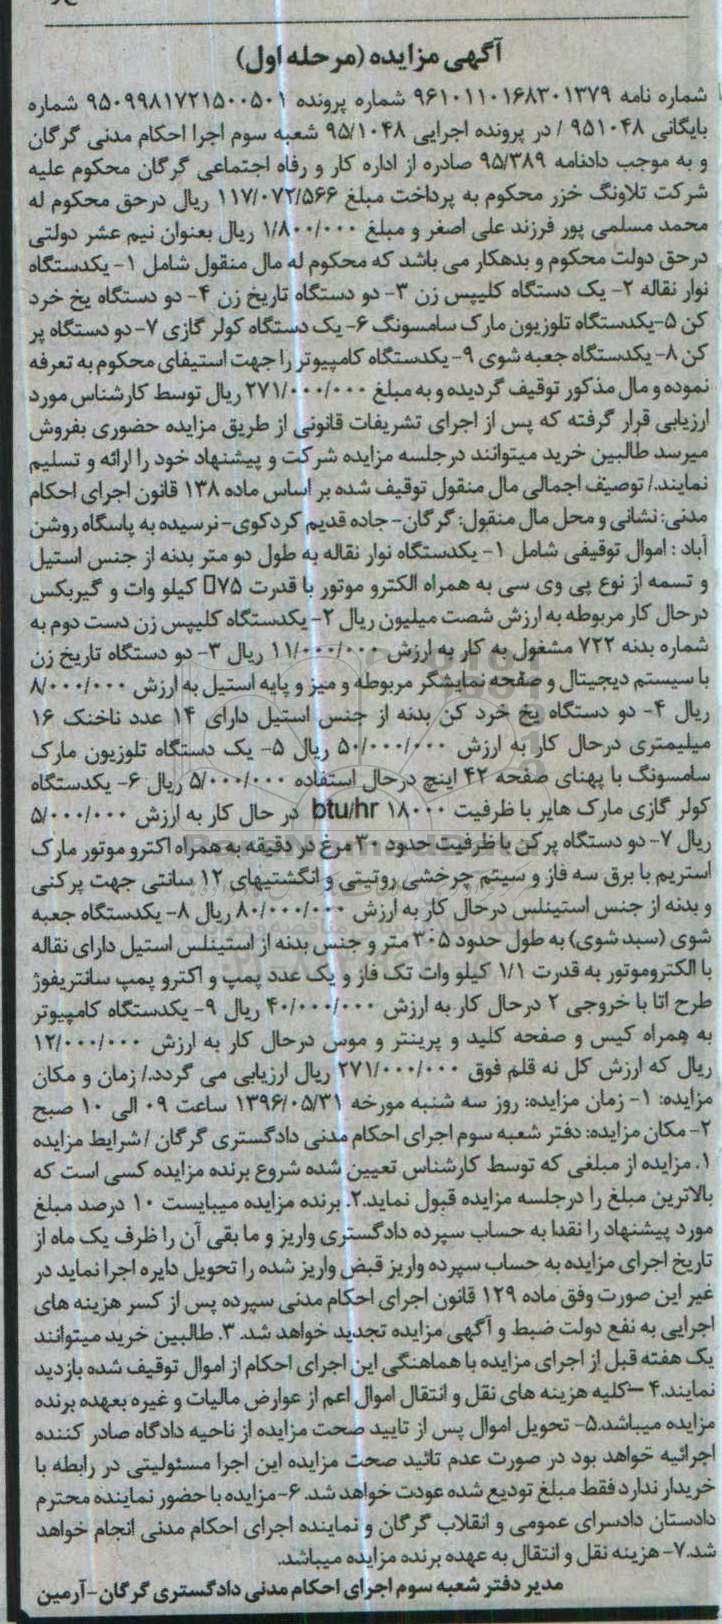 آگهی مزایده (مرحله اول)
شماره نامه ۹۶۱۰۱۱۰۱۶۸۳۰۱۳۷۹ شماره پرونده ۹۵۰۹۹۸۱۷۲۱۵۰۰۵۰۱ شماره
بایگانی ۹۵۱۰۴۸ / در پرونده اجرایی ۹۵/۱۰۴۸ شعبه سوم اجرا احکام مدنی گرگان
و به موجب دادنامه ۹۵/۳۸۹ صادره از اداره کار و رفاه اجتماعی گرگان محکوم علیه
شرکت تلاونگ خزر محکوم به پرداخت مبلغ ۱۱۷/۰۷۲/۵۶۶ ریال درحق محکوم له
محمد مسلمی پور فرزند علی اصغر و مبلغ ۱/۸۰۰/۰۰۰ ریال بعنوان نیم عشر دولتی
درحق دولت محکوم و بدهکار می باشد که محکوم له مال منقول شامل ۱- یکدستگاه
نوار نقاله ۲- یک دستگاه کلیپس زن ۳- دو دستگاه تاریخ زن ۴- دو دستگاه یخ خرد
کن ۵-یکدستگاه تلوزیون مارک سامسونگ ۶- یک دستگاه کولر گازی ۷- دو دستگاه پر
کن ۸- یکدستگاه جعبه شوی ۹- یکدستگاه کامپیوتر را جهت استیفای محکوم به تعرفه
نموده و مال مذکور توقیف گردیده و به مبلغ ۲۷۱/۰۰۰/۰۰۰ ریال توسط کارشناس مورد
ارزیابی قرار گرفته که پس از اجرای تشریفات قانونی از طریق مزایده حضوری بفروش
میرسد طالبین خرید میتوانند درجلسه مزایده شرکت و پیشنهاد خود را ارائه و تسلیم
نمایند./ توصیف اجمالی مال منقول توقیف شده بر اساس ماده ۱۳۸ قانون اجرای احکام
مدنی: نشانی و محل مال منقول: گرگان- جاده قدیم کردکوی- نرسیده به پاسگاه روشن
آباد : اموال توقیفی شامل ۱- یکدستگاه نوار نقاله به طول دو متر بدنه از جنس استیل
و تسمه از نوع پی وی سی به همراه الکترو موتور با قدرت ۷۵▯ کیلو وات و گیربکس
درحال کار مربوطه به ارزش شصت میلیون ریال ۲- یکدستگاه کلیپس زن دست دوم به
شماره بدنه ۷۲۲ مشغول به کار به ارزش ۱۱/۰۰۰/۰۰۰ ریال ۳- دو دستگاه تاریخ زن
با سیستم دیجیتال و صفحه نمایشگر مربوطه و میز و پایه استیل به ارزش ۸/۰۰۰/۰۰۰
ریال ۴- دو دستگاه یخ خرد کن بدنه از جنس استیل دارای ۱۴ عدد ناخنک ۱۶
میلیمتری درحال کار به ارزش ۵۰/۰۰۰/۰۰۰ ریال ۵- یک دستگاه تلوزیون مارک
سامسونگ با پهنای صفحه ۴۲ اینچ درحال استفاده ۵/۰۰۰/۰۰۰ ریال ۶- یکدستگاه
کولر گازی مارک هایر با ظرفیت ۱۸۰۰۰ btu/hr در حال کار به ارزش ۵/۰۰۰/۰۰۰
ریال ۷- دو دستگاه پرکن با ظرفیت حدود ۳۰ مرغ در دقیقه به همراه اکترو موتور مارک
استریم با برق سه فاز و سیتم چرخشی روتیتی و انگشتیهای ۱۲ سانتی جهت پرکنی
و بدنه از جنس استینلس درحال کار به ارزش ۸۰/۰۰۰/۰۰۰ ریال ۸- یکدستگاه جعبه
شوی (سبد شوی) به طول حدود ۳۰۵ متر و جنس بدنه از استینلس استیل دارای نقاله
با الکتروموتور به قدرت ۱/۱ کیلو وات تک فاز و یک عدد پمپ و اکترو پمپ سانتریفوژ
طرح اتا با خروجی ۲ درحال کار به ارزش ۴۰/۰۰۰/۰۰۰ ریال ۹- یکدستگاه کامپیوتر
به همراه کیس و صفحه کلید و پرینتر و موس درحال کار به ارزش ۱۲/۰۰۰/۰۰۰
ریال که ارزش کل نه قلم فوق ۲۷۱/۰۰۰/۰۰۰ ریال ارزیابی می گردد./ زمان و مکان
مزایده: ۱- زمان مزایده: روز سه شنبه مورخه ۱۳۹۶/۰۵/۳۱ ساعت ۰۹ الی ۱۰ صبح
۲- مکان مزایده: دفتر شعبه سوم اجرای احکام مدنی دادگستری گرگان / شرایط مزایده
۱. مزایده از مبلغی که توسط کارشناس تعیین شده شروع برنده مزایده کسی است که
بالاترین مبلغ را درجلسه مزایده قبول نماید.۲. برنده مزایده میبایست ۱۰ درصد مبلغ
مورد پیشنهاد را نقدا به حساب سپرده دادگستری واریز و ما بقی آن را ظرف یک ماه از
تاریخ اجرای مزایده به حساب سپرده واریز قبض واریز شده را تحویل دایره اجرا نماید در
غیر این صورت وفق ماده ۱۲۹ قانون اجرای احکام مدنی سپرده پس از کسر هزینه های
اجرایی به نفع دولت ضبط و آگهی مزایده تجدید خواهد شد. ۳. طالبین خرید میتوانند
یک هفته قبل از اجرای مزایده با هماهنگی این اجرای احکام از اموال توقیف شده بازدید
نمایند.۴ –کلیه هزینه های نقل و انتقال اموال اعم از عوارض مالیات و غیره بعهده برنده
مزایده میباشد.۵- تحویل اموال پس از تایید صحت مزایده از ناحیه دادگاه صادر کننده
اجرائیه خواهد بود در صورت عدم تائید صحت مزایده این اجرا مسئولیتی در رابطه با
خریدار ندارد فقط مبلغ تودیع شده عودت خواهد شد. ۶- مزایده با حضور نماینده محترم
دادستان دادسرای عمومی و انقلاب گرگان و نماینده اجرای احکام مدنی انجام خواهد
شد.۷- هزینه نقل و انتقال به عهده برنده مزایده میباشد.
مدیر دفتر شعبه سوم اجرای احکام مدنی دادگستری گرگان-آرمین